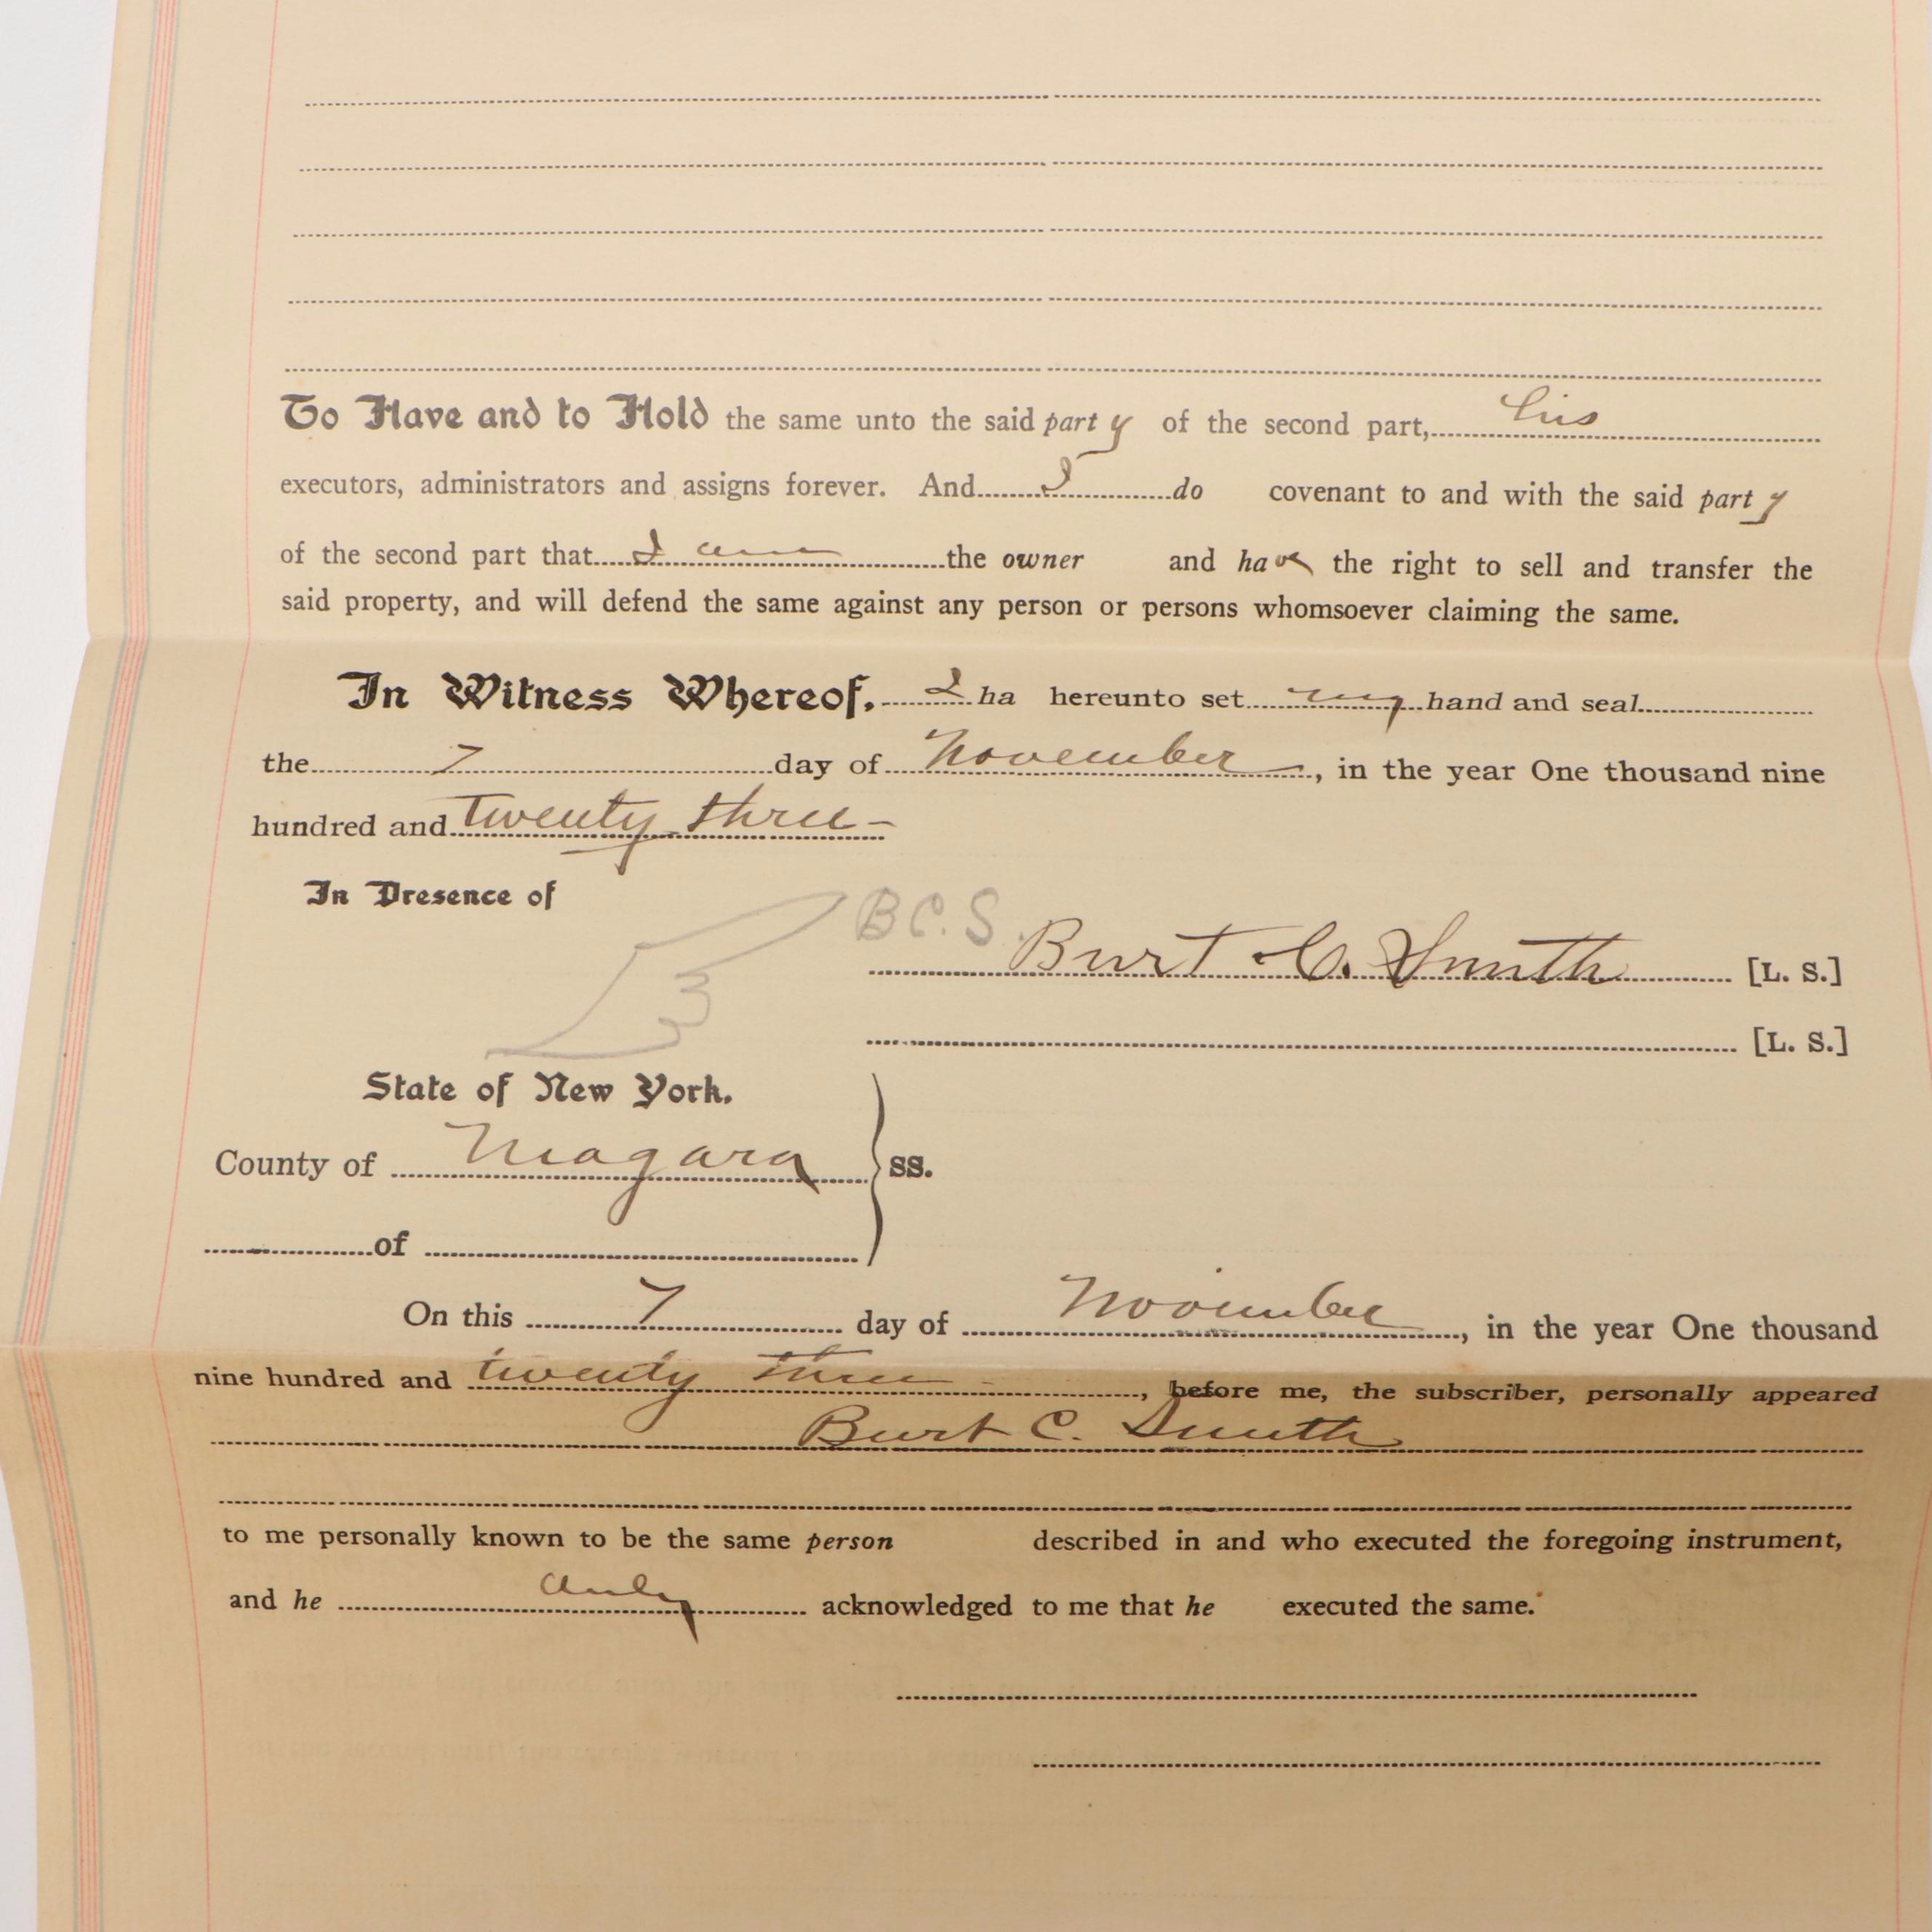 To Have and to Hold the same unto the said party of the second part, his
executors, administrators and assigns forever. And I do covenant to and with the said party
of the second part that I am the owner and have the right to sell and transfer the
said property, and will defend the same against any person or persons whomsoever claiming the same.
In Witness Whereof, I ha hereunto set my hand and seal
the 7 day of November, in the year One thousand nine
hundred and Twenty three -
In Presence of
B C. S.
Burt C. Smith [L. S.]
[L. S.]
State of New York,
County of Niagara ss.
of
On this 7 day of November, in the year One thousand
nine hundred and twenty three, before me, the subscriber, personally appeared
Burt C. Smith
to me personally known to be the same person described in and who executed the foregoing instrument,
and he duly acknowledged to me that he executed the same.